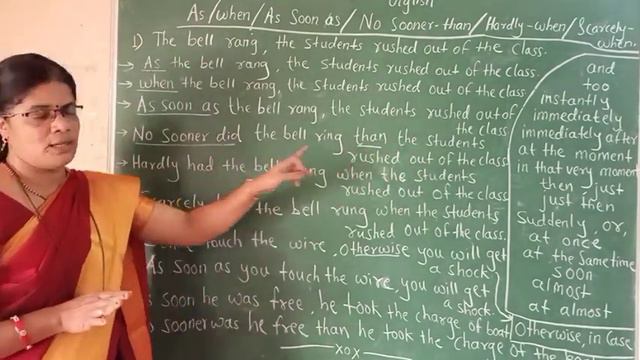 English
As/when/As Soon as/No Sooner-than/Hardly-when/Scarcely-when.
1) The bell rang, the students rushed out of the class.
→ As the bell rang, the students rushed out of the class.
→ when the bell rang, the students rushed out of the class.
→ As soon as the bell rang, the students rushed out of the class
→ No Sooner did the bell ring than the students rushed out of the class.
→ Hardly had the bell rung when the students rushed out of the class.
the bell rung when the students rushed out of the class.
touch the wire, otherwise you will get a shock.
As soon as you touch the wire, you will get a shock.
soon he was free, he took the charge of boat
sooner was he free than he took the charge of the
xox
and
too
instantly
immediately
immediately after
at the moment
in that very moment
then just
just then
Suddenly, or,
at once
at the Sametime
soon
almost
at almost
Otherwise, in Case